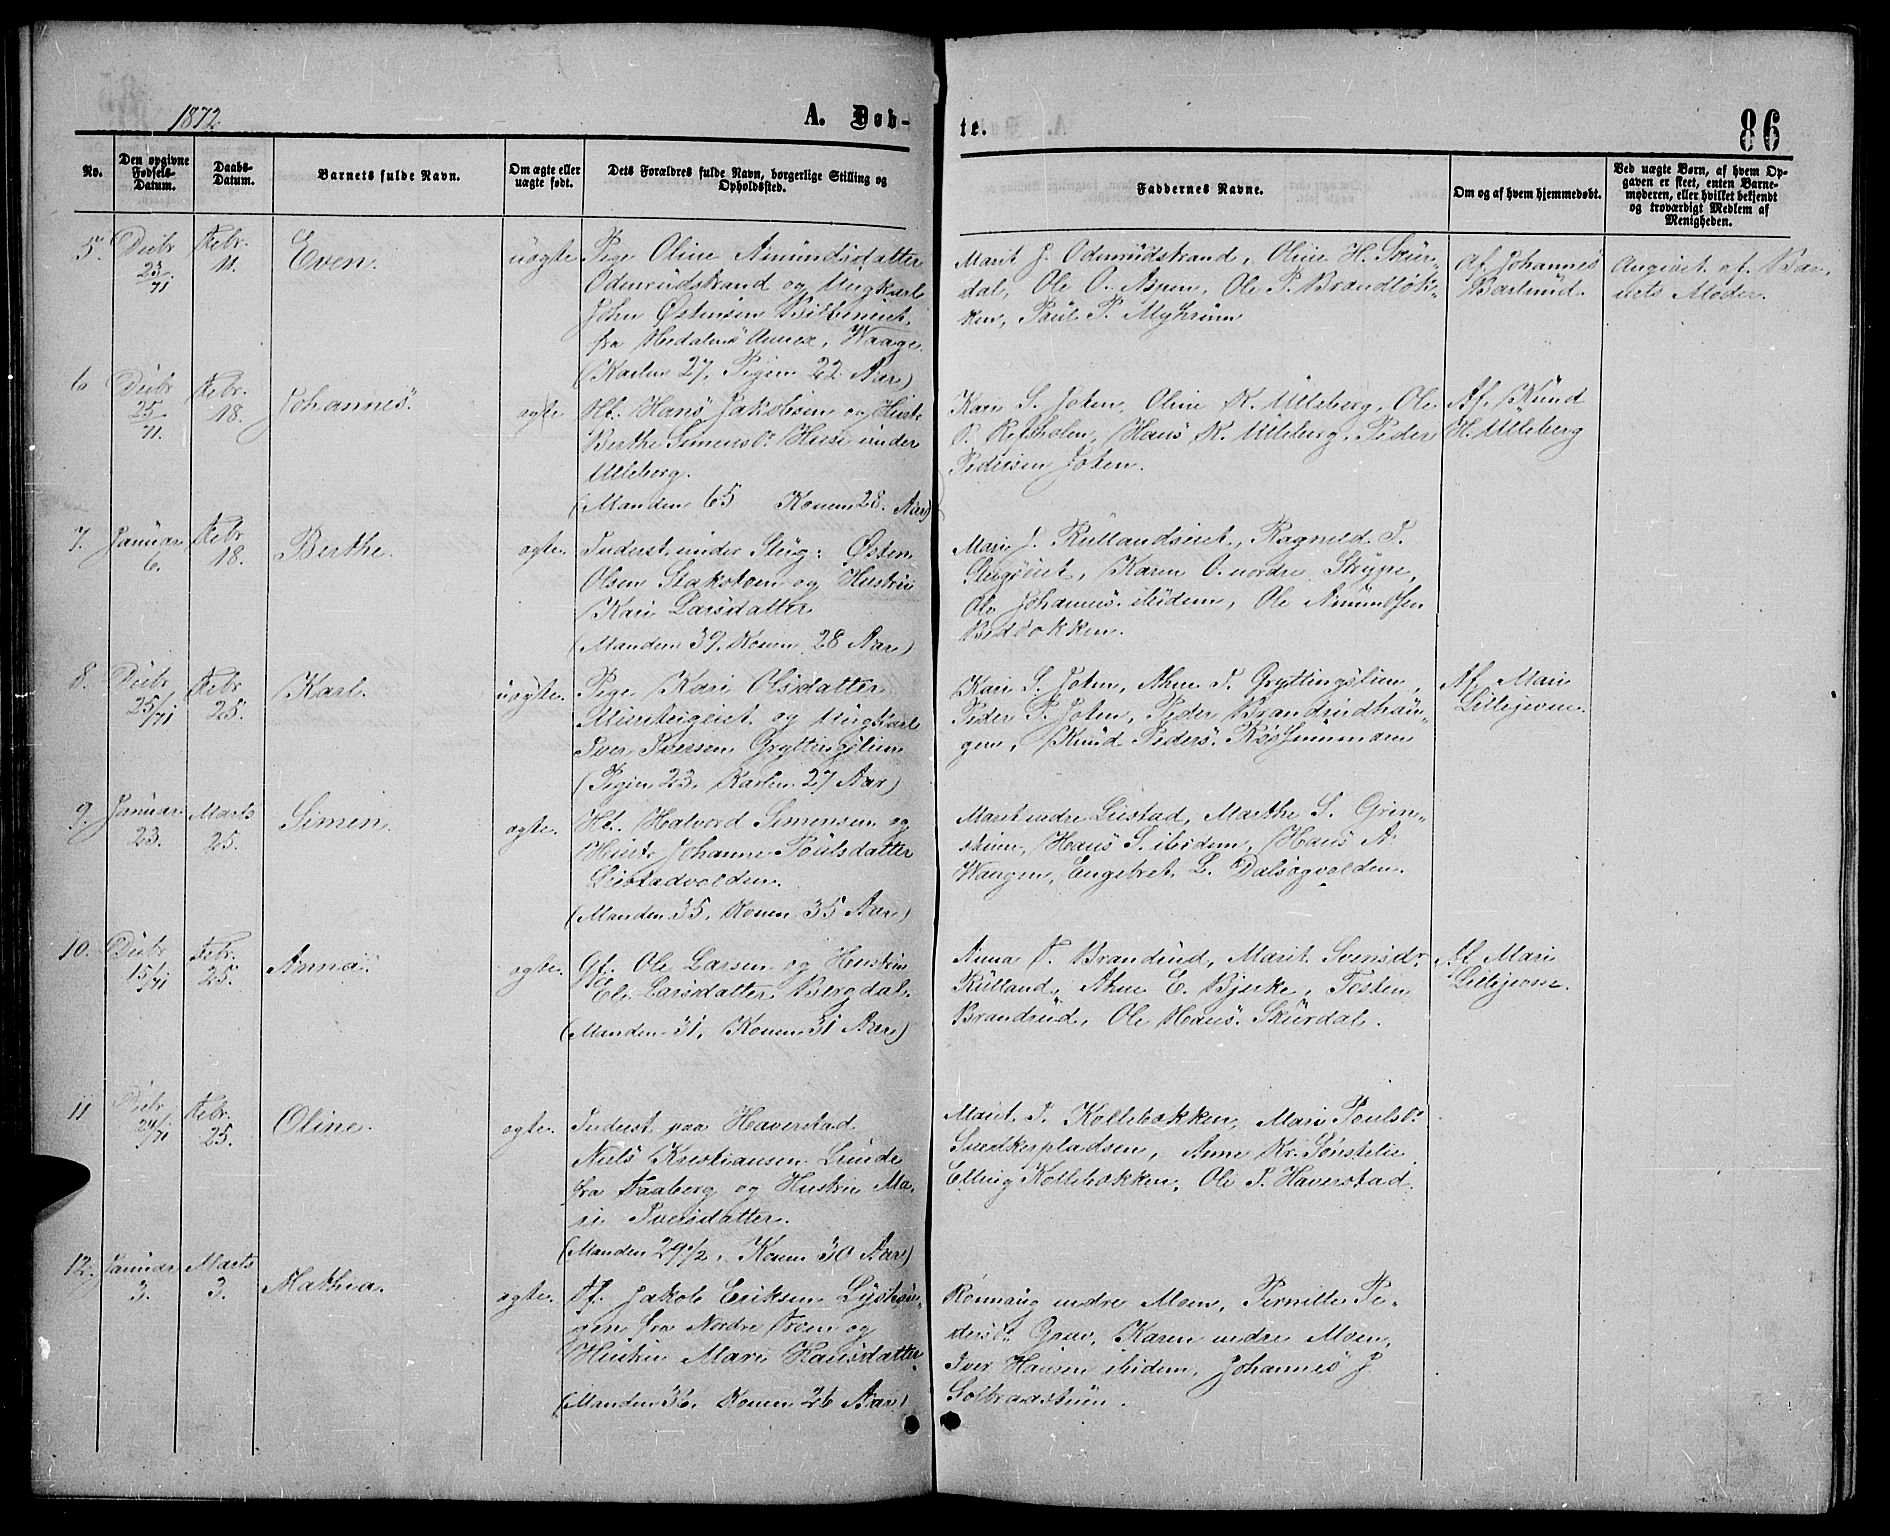 1872.
A. Døb-
te.
86
No.
Den opgivne
Fødsels-
Datum.
Daabs-
Datum.
Barnets fulde Navn.
Om ægte eller
uægte født.
Dets Forældres fulde Navn, borgerlige Stilling og
Opholdssted.
Faddernes Navne.
Om og af hvem hjemmedøbt.
Ved uægte Børn, af hvem Op-
gaven er skeet, enten Barne-
moderen, eller hvilket bekjendt
og troværdigt Medlem af
Menigheden.
5. Debr 23/71 Febr. 11. Even. uægte
Pige Oline Amundsdatter
Odenrudstrand og Ungkarl
John Østensen
fra Hedalens Annex, Waage.
(Karlen 27, Pigen 22 Aar)
Marit J. Odenrudstrand, Oline H. Skur-
dal, Ole O. Aspen, Ole P. Brandløk-
ken, Poul P. Myhrum
Af Johannes
Barlund.
Angivet af Bar-
nets Moder.
6 Debr 25/71. Febr. 18. Johannes. ægte
Hd. Hans Jakobsen og Hustr.
Berthe Simensdr. Huse under
Ulleberg.
(Manden 65 Konen 28 Aar)
Kari S. Joten, Oline K. Ulleberg, Ole
P. Refsholen, Hans K. Ulleberg, Peder
Pedersen Joten.
Af Knud
H. Ulleberg
7. Januar 6. Febr 18. Berthe. ægte.
Inderst. under Steig: Østen
Olsen Stakstoen og Hustru
Kari Larsdatter
(Manden 39, Konen 28 Aar)
Mari J. Rullandseiet, Ragnild T.
Steigseiet, Karen O. nordre Skrype,
Ole Johannes. ibidem, Ole Amundsen
8. Debr 25/71 Febr 25. Karl. uægte.
Pige Kari Olsdatter
og Ungkarl
Iver Iversen Gryttingslien
(Pigen 23, Karlen 27 Aar)
Kari S. Joten, Ahne T. Gryttingslien,
Peder P. Joten, Peder Brandrudhau-
gen, Knud Peders.
Af Mari
Lillejevne.
9. Januar 23. Marts 25. Simen. ægte.
Hd. Halvord Simensen og
Hustr. Johanne Poulsdatter
Liestadvolden.
(Manden 35, Konen 35 Aar)
Marit indre Liestad, Marthe S. Grin-
stuen, Hans S. ibidem, Hans A.
Wangen, Engebret L. Dalsegvolden.
10. Debr 15/71 Febr. 25. Anna. ægte.
Gf. Ole Larsen og Hustru
Eli Larsdatter Bergdal.
(Manden 31, Konen 31 Aar)
Anna T. Brandrud, Marit Svensdr.
Rulland, Ahne E. Bjerke, Tosten
Brandrud, Ole Hans. Skurdal.
Af Mari
Lillejevne.
11 Debr 24/71 Febr. 25. Oline. ægte.
Inderst. paa Haverstad
Niels Kristiansen Lunde
fra Faaberg og Hustru Ma-
ri Iversdatter.
(Manden 29 1/2, Konen 30 Aar)
Marit I. Kollebakken, Mari Poulsdr.
Snedkerpladsen, Anne Kr. Tønstelie
Elling Kollebakken, Ole I. Haverstad.
12. Januar 3. Marts 3. Mathea. ægte.
Ff. Jakob Eriksen Lyshau-
gen fra Nordre Froen og
Hustru Mari Hansdatter
(Manden 36, Konen 26 Aar)
Rønnaug indre Moen, Pernille Pe-
dersdr. Grav, Karen indre Moen,
Iver Hansen ibidem, Johannes J.
Solbraastuen.